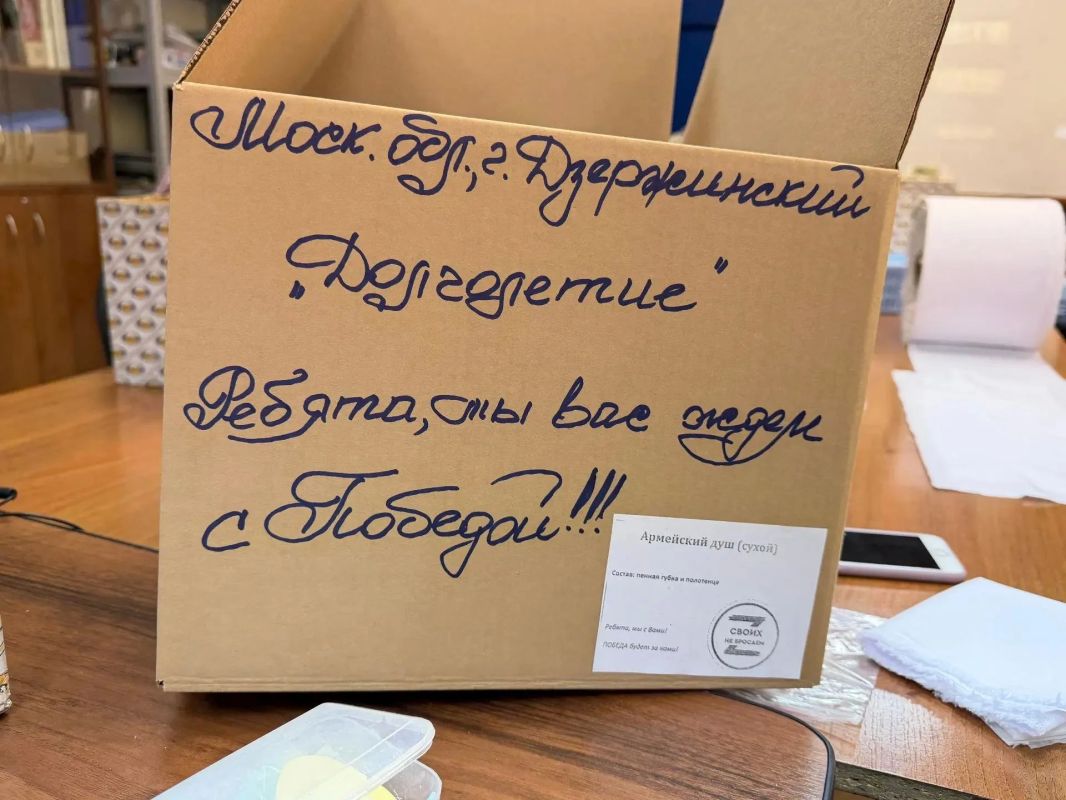 Моск. обл., г. Дзержинский
„Долголетие"
Ребята, мы вас ждем
с Победой!!!
Армейский душ (сухой)
Состав: пенная губка и полотенце
Ребята, мы с Вами!
ПОБЕДА будет за нами!
СВОИХ
НЕ БРОСАЕМ